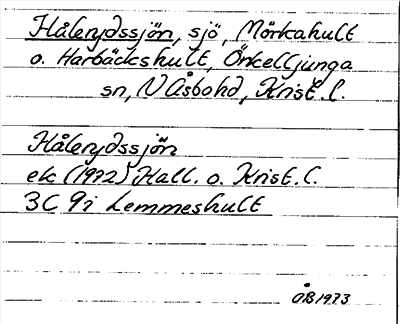 Hålerydssjön, sjö, Mörkahult
o. Harbäckshult, Örkelljunga
sn, N Åsbohd, Krist. l.
Hålerydssjön
ek (1972) Hall. o. Krist. l.
3C 9i Lemmeshult
ÅB 1973